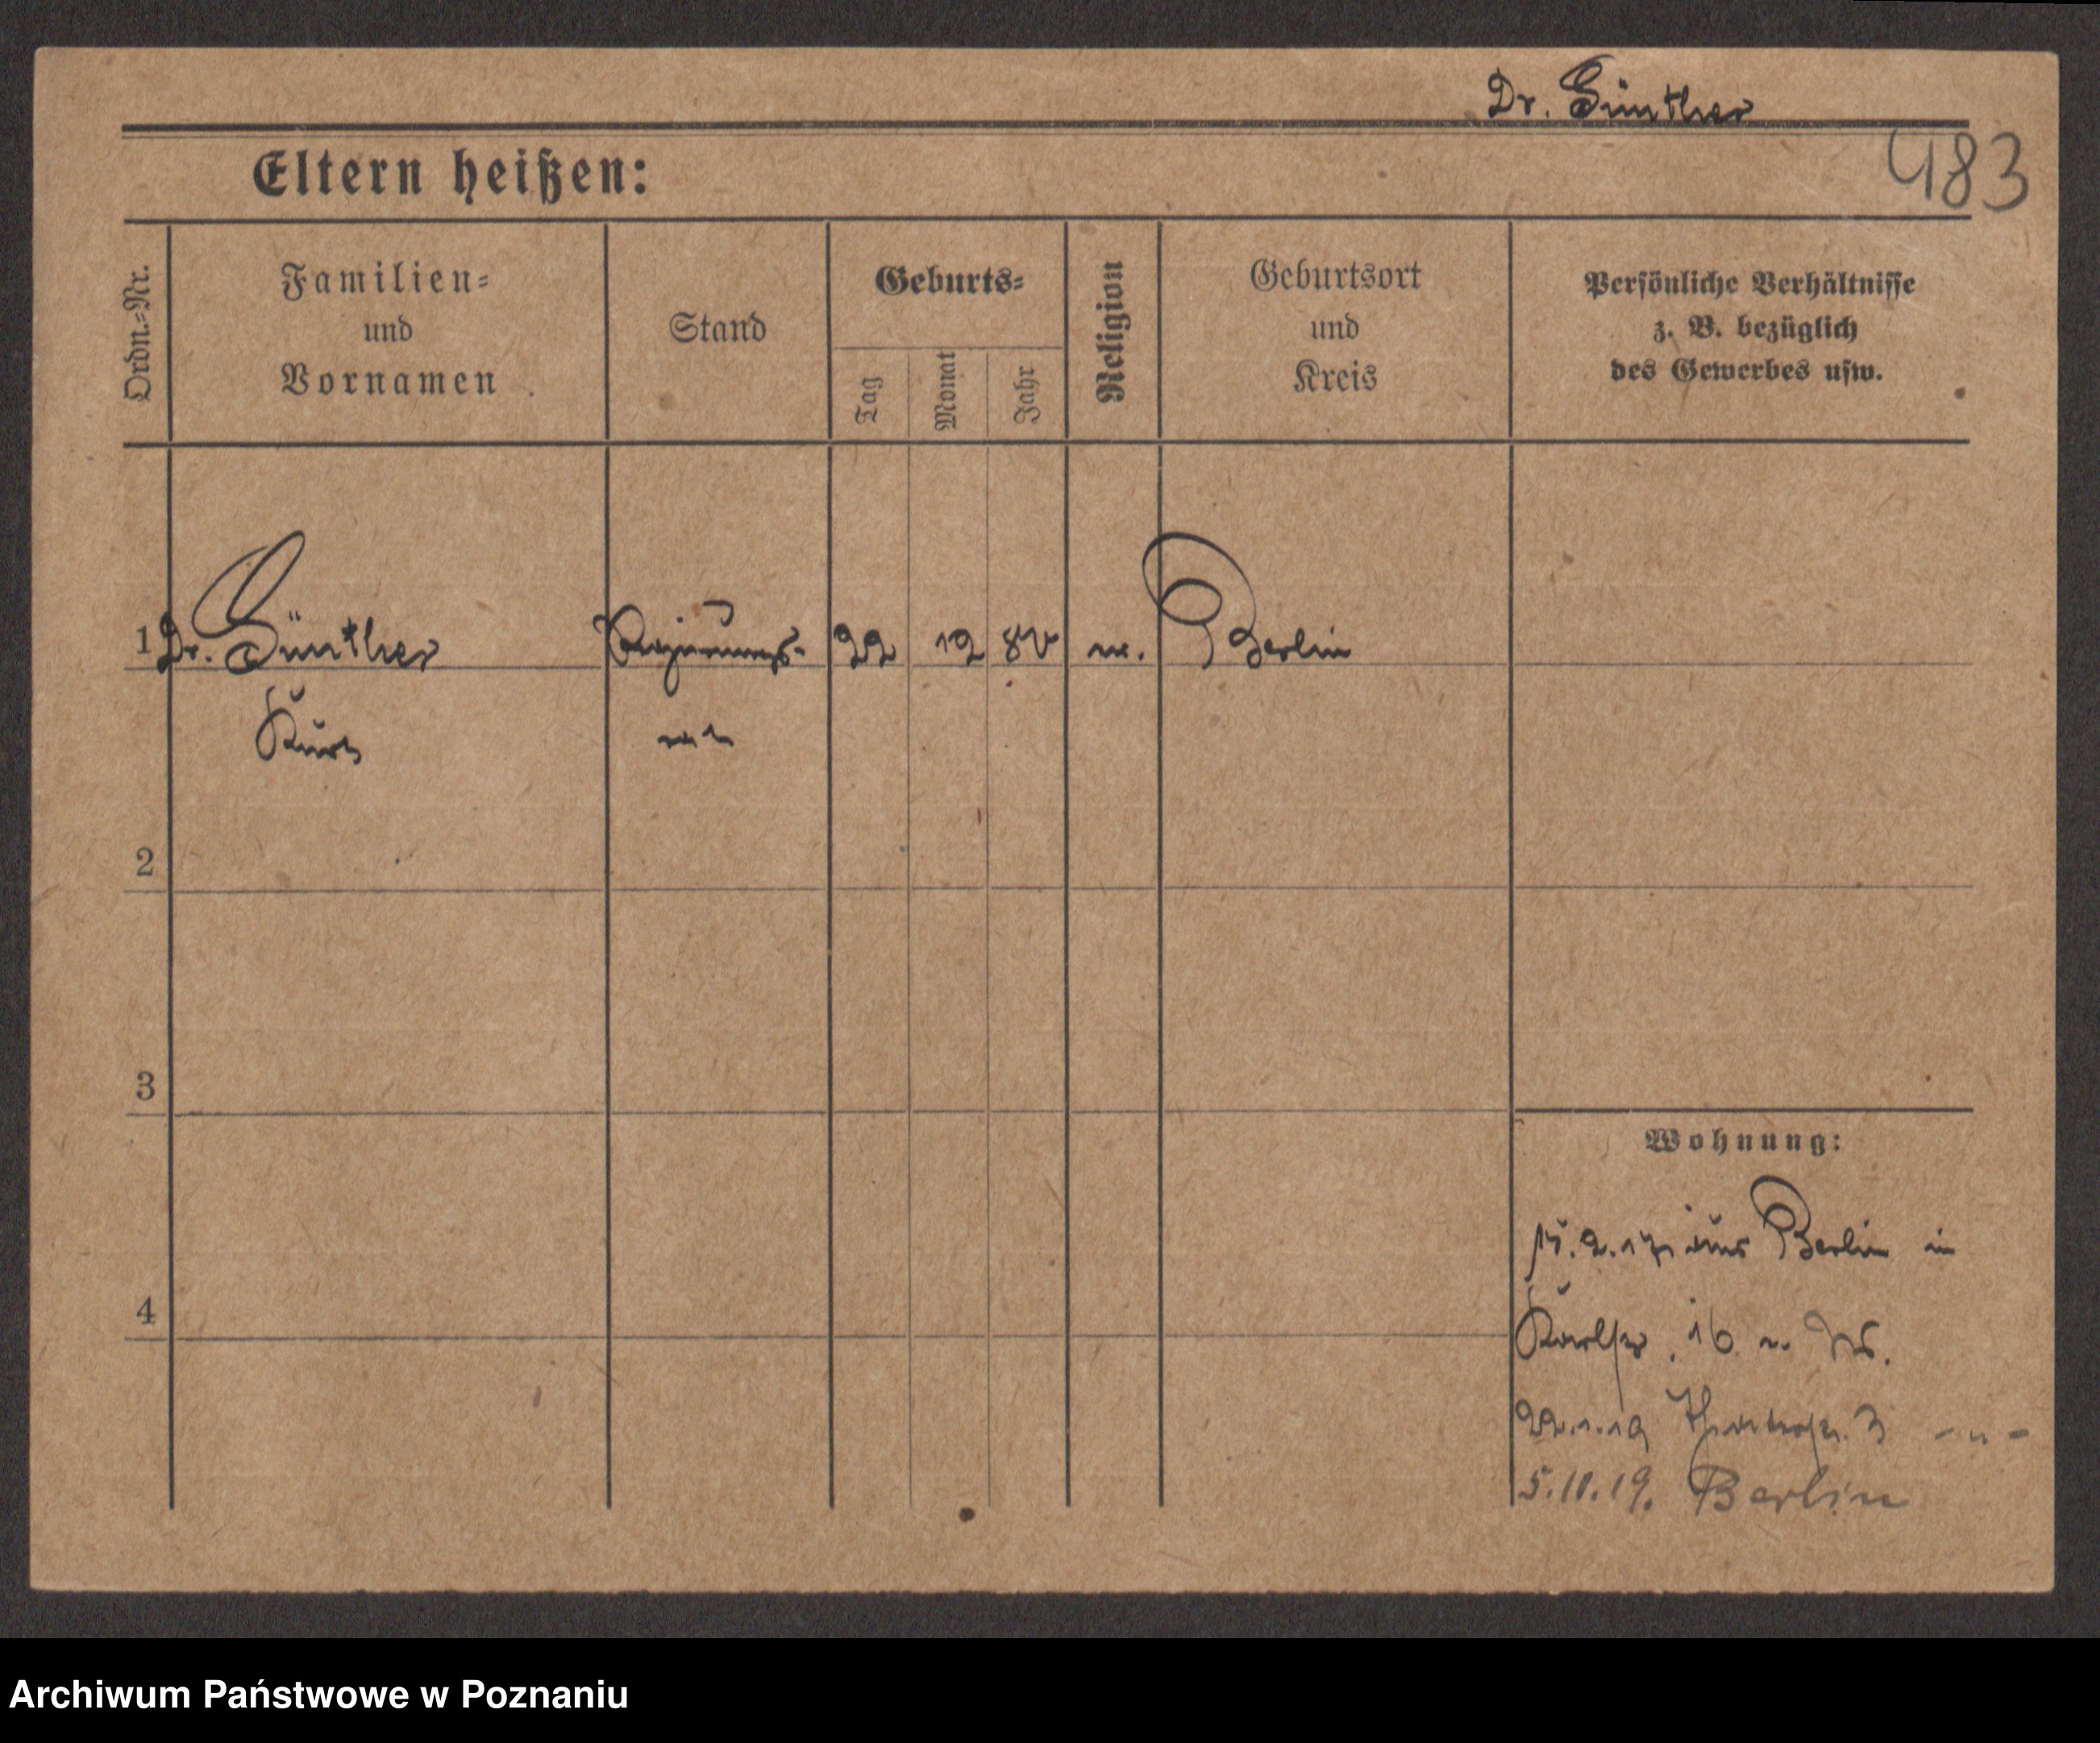 Dr. Günther
483
Eltern heißen:
Ordn.-Nr.
Familien-
und
Vornamen
Stand
Geburts-
Tag
Monat
Jahr
Religion
Geburtsort
und
Kreis
Persönliche Verhältnisse
z. B. bezüglich
des Gewerbes usw.
1 Dr. Günther Regierungs- 22 12 Berlin
Kurt rat
2
3
4
Wohnung:
Berlin in
Karlstr. 16
22.1.19 3 - " -
5.11.19. Berlin
Archiwum Państwowe w Poznaniu